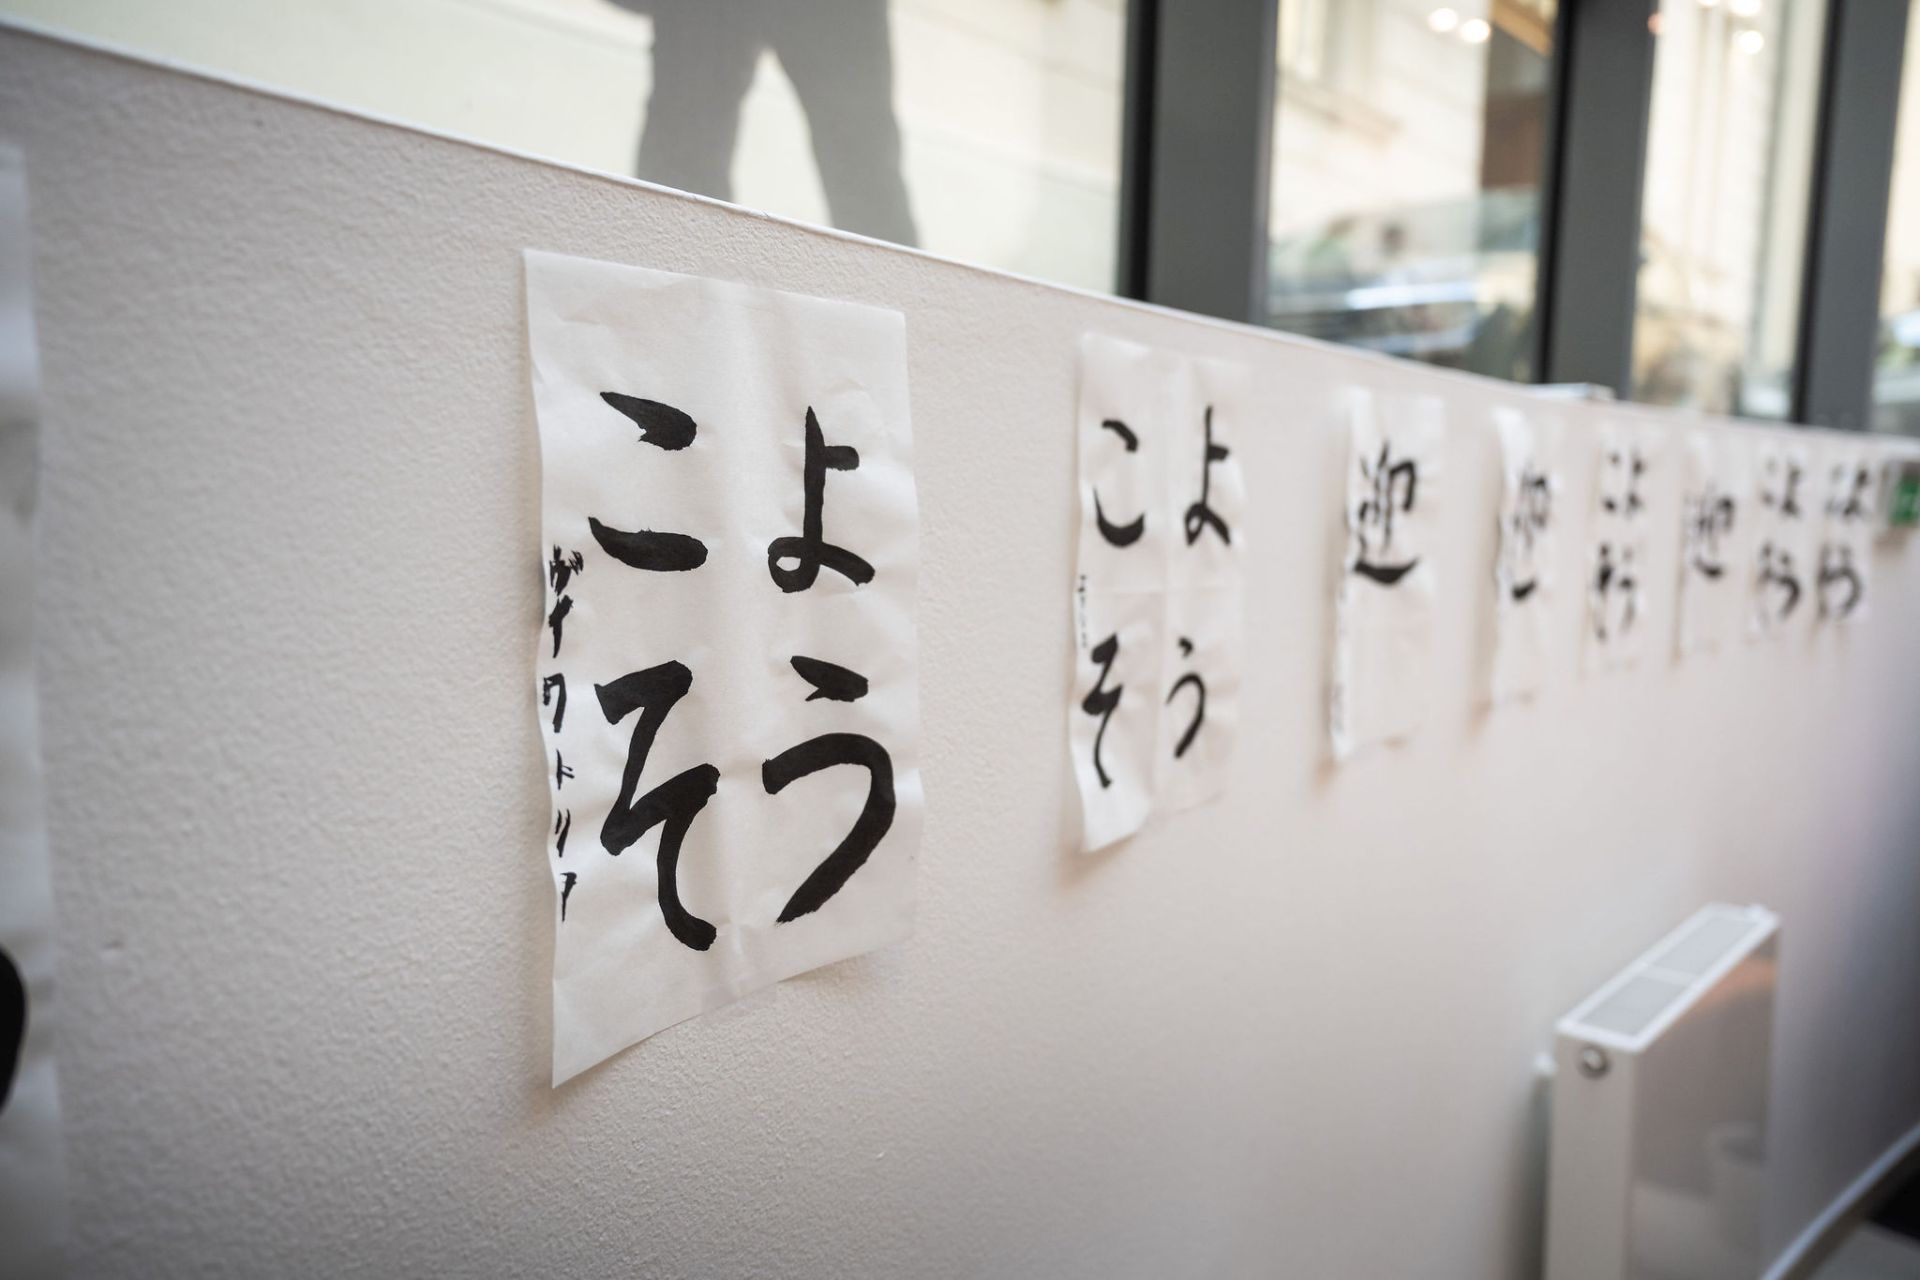 よう
こそ
ヴィクトリア
よう
こそ
迎
迎
よう
こそ
迎
よう
こそ
よう
こそ